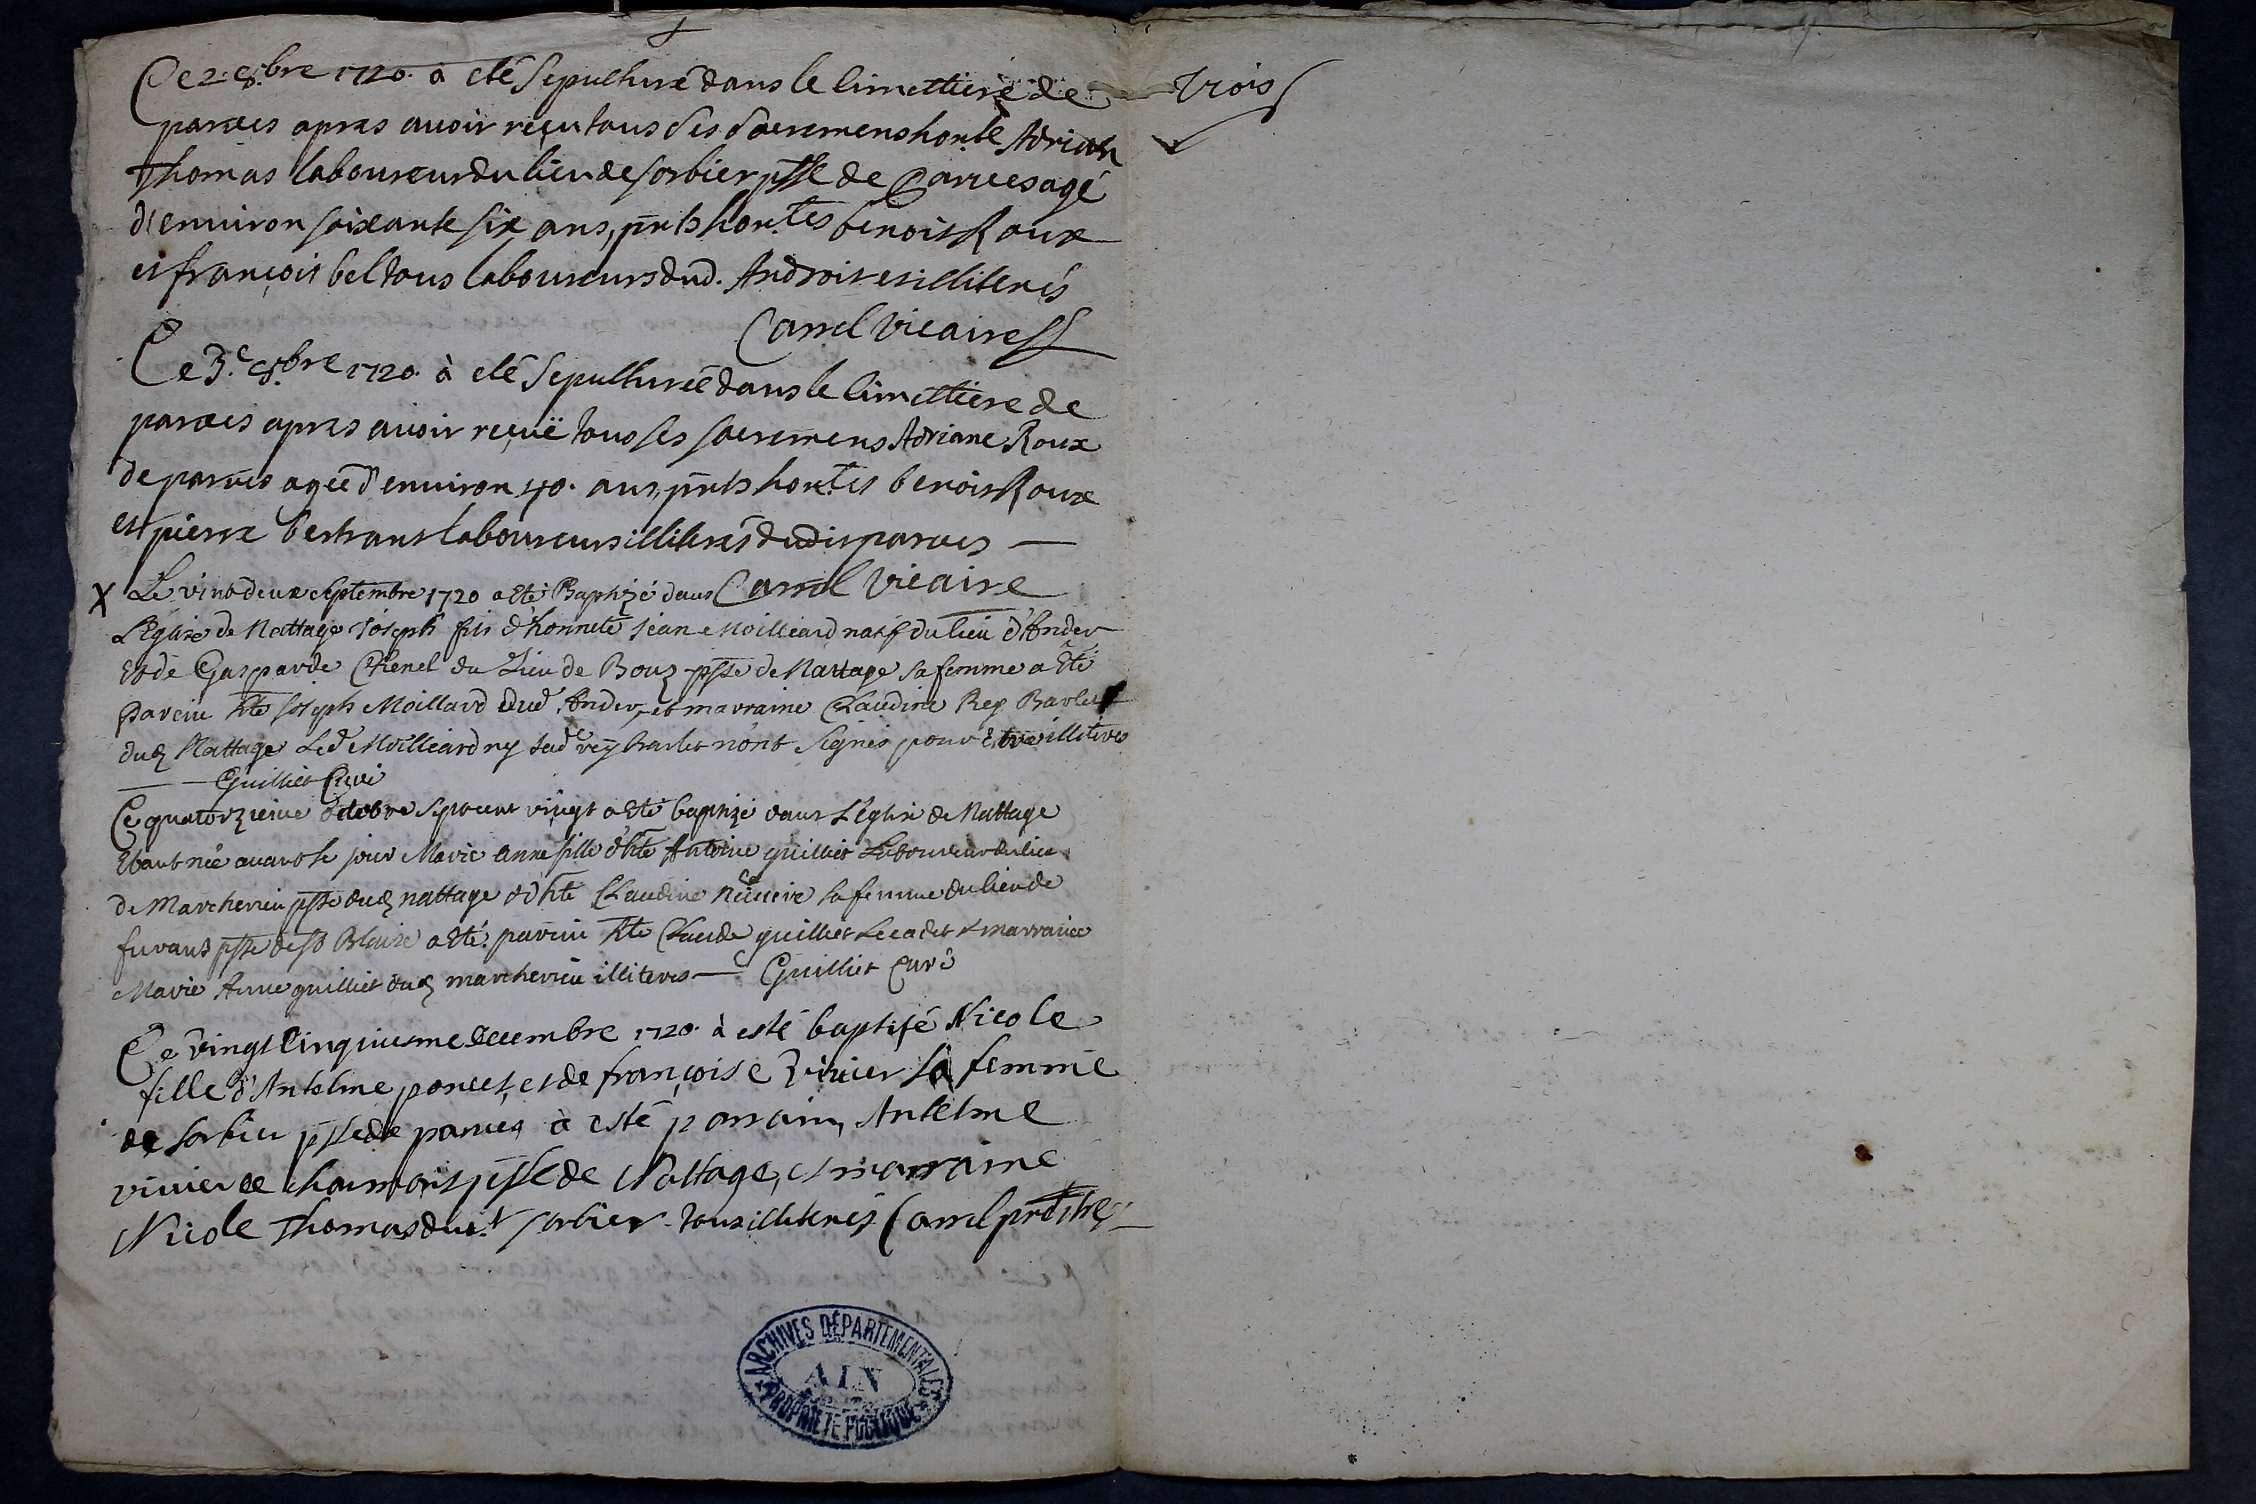 Ce 2. 8.bre 1720. à eté Sepulturé dans le Cimettiere de
parves apres avoir reçu tous ses Sacremens hon.te Adrian
Thomas laboureur du lieu de sorbier psse de Parves agé
d'environ soixante six ans, pnts hon.tes benoit Roux
et françois bel tous laboureurs dud. Androit et illiterés
Carrel vicaire
Ce 3.e 8.bre 1720. à eté Sepulturée dans le Cimettiere de
parves apres avoir reçuë tous ses sacremens Adriane Roux
de parves agée d'environ 40. ans, pnts hon.tes benoit Roux
et pierre bertrant laboureurs illiterés dudit parves
Carrel Vicaire
X Le vint deux septembre 1720 a Eté Baptizé dans
L'Eglise de Nattage Joseph fils d'honnete Jean Moilleard natif du lieu d'Ander
Et de Gasparde Chenel du Lieu de Bouz psse de Nattage sa femme a Eté
Parein hte Joseph Moillard dud Ander, et marraine Claudine Rey Barlet
dud Nattage Led Moilleard ny lade rey barlet n'ont Signés pour Etre illiteres
Guilliet Curé
Ce quatorzieme Octobre sept cent vingt a Eté baptizé dans L'Eglise de Nattage
Etant née avant le jour Marie Anne fille d'hte Antoine guilliet Laboureur du lieu
de Marcherieu psse dud nattage et d'hte Claudine sa femme du lieu de
furans psse de St Blaise a Eté parein hte Claude guilliet Le cadet & marraine
Marie Anne guilliet dud marcherieu illiteres Guilliet Curé
Ce vingt Cinquiesme decembre 1720. à esté baptisé Nicole
fille d'Antelme poncet, et de françoise vivier sa femme
de sorbier psse de parves à esté parrain, Antelme
vivier de chamont psse de Nattage, et marraine
Nicole Thomas dud.t sorbier tous illiterés Carrel prêtre
trois
ARCHIVES DÉPARTEMENTALES
AIN
PROPRIÉTÉ PUBLIQUE